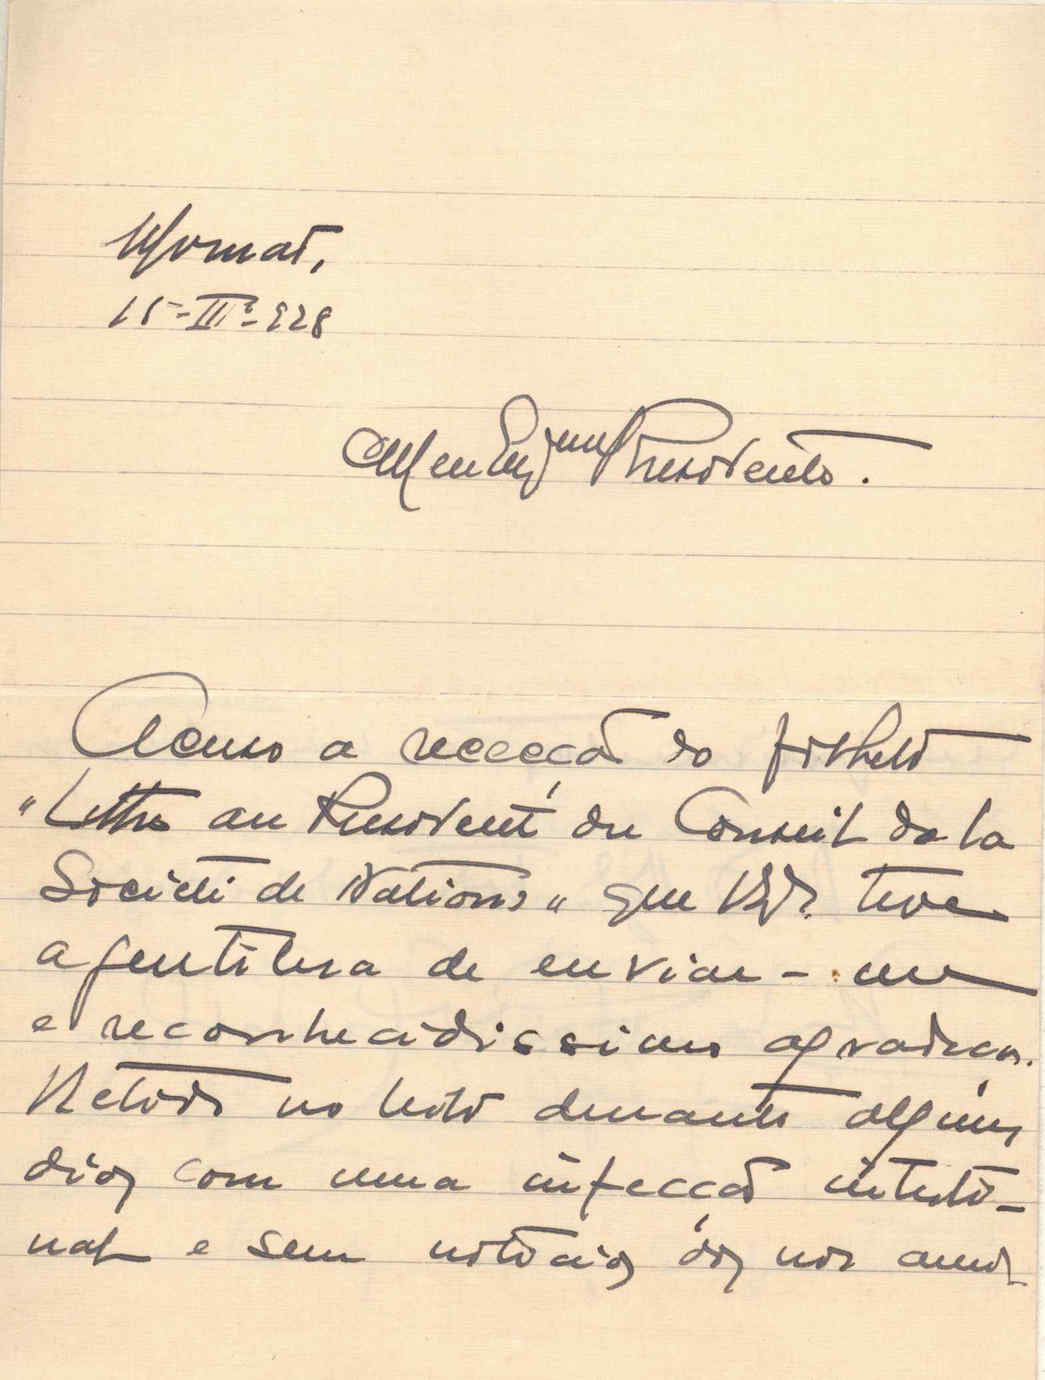 15-III-928
Meu Exmo Presidente.
Acuso a receção do folheto
"Lettre au President du Conseil de la
Societé de Nations" que V. Exa. teve
a gentileza de enviar-me
e reconhecidissimo agradeço.
Retido no leito durante alguns
dias com uma infecção intesti-
nal e sem noticias dos nos amos